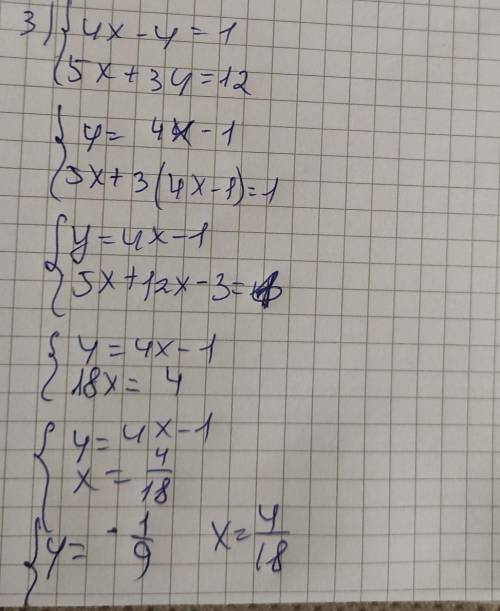 3) 4x - y = 1
5x + 3y = 12
y = 4x - 1
5x + 3(4x - 1) = 1
y = 4x - 1
5x + 12x - 3 =
y = 4x - 1
18x = 4
y = 4x - 1
x = 4/18
y = - 1/9 x = 4/18